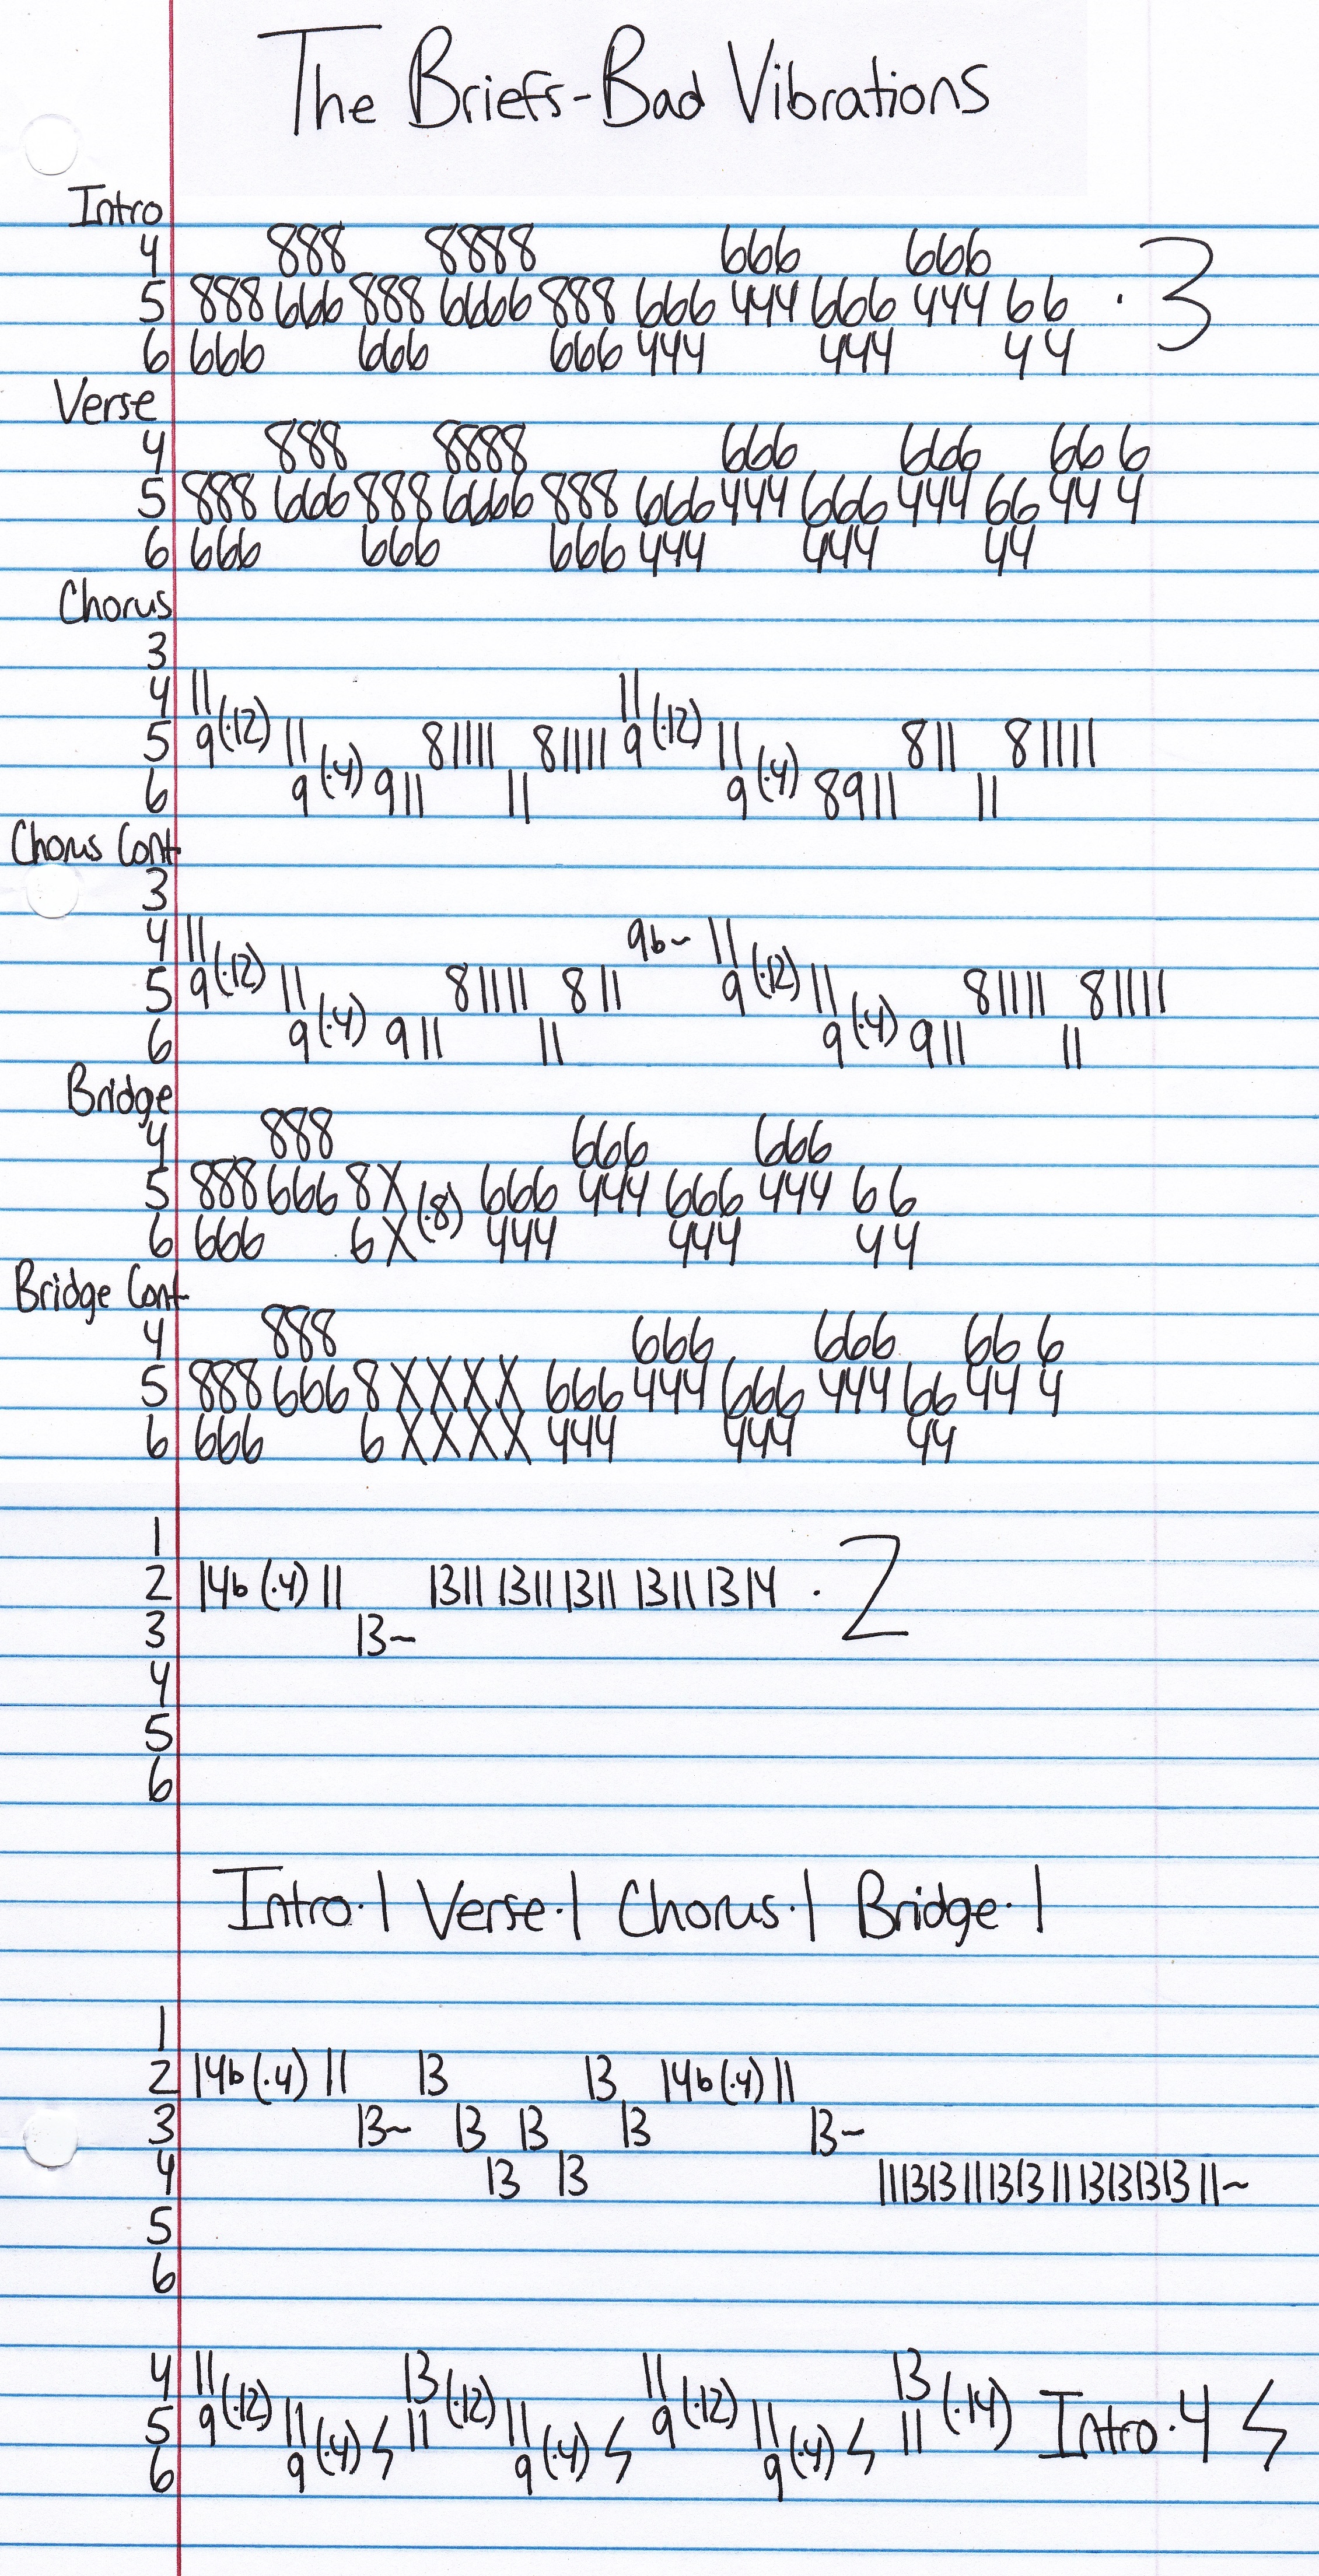 The Briefs-Bad Vibrations
Intro
4 888 8888 666 666
5 888 666 888 6666 888 666 444 666 444 66 · 3
6 666 666 666 444 444 44
Verse
4 888 8888 666 666 66 6
5 888 666 888 6666 888 666 444 666 444 66 44 4
6 666 666 666 444 444 44
Chorus
3
4 11 11
5 9 (·12) 11 8 11 11 8 11 11 9 (·12) 11 8 11 8 11 11
6 9 (·4) 9 11 11 9 (·4) 8 9 11 11
Chorus Cont
3
4 11 9b~ 11
5 9 (·12) 11 8 11 11 8 11 9 (·12) 11 8 11 11 8 11 11
6 9 (·4) 9 11 11 9 (·4) 9 11 11
Bridge
4 888 666 666
5 888 666 8X (·8) 666 444 666 444 66
6 666 6X 444 444 44
Bridge Cont
4 888 666 666 66 6
5 888 666 8 XXXX 666 444 666 444 66 44 4
6 666 6 XXXX 444 444 44
1
2 14b (·4) 11 13 11 13 11 13 11 13 11 13 14 · 2
3 13~
4
5
6
Intro·1 Verse·1 Chorus·1 Bridge·1
1
2 14b (·4) 11 13 13 14b (·4) 11
3 13~ 13 13 13 13~
4 13 13 11 13 13 11 13 13 11 13 13 13 13 11~
5
6
4 11 13 11 13
5 9 (·12) 11 11 (·12) 11 9 (·12) 11 11 (·14) Intro·4
6 9 (·4) 9 (·4) 9 (·4)